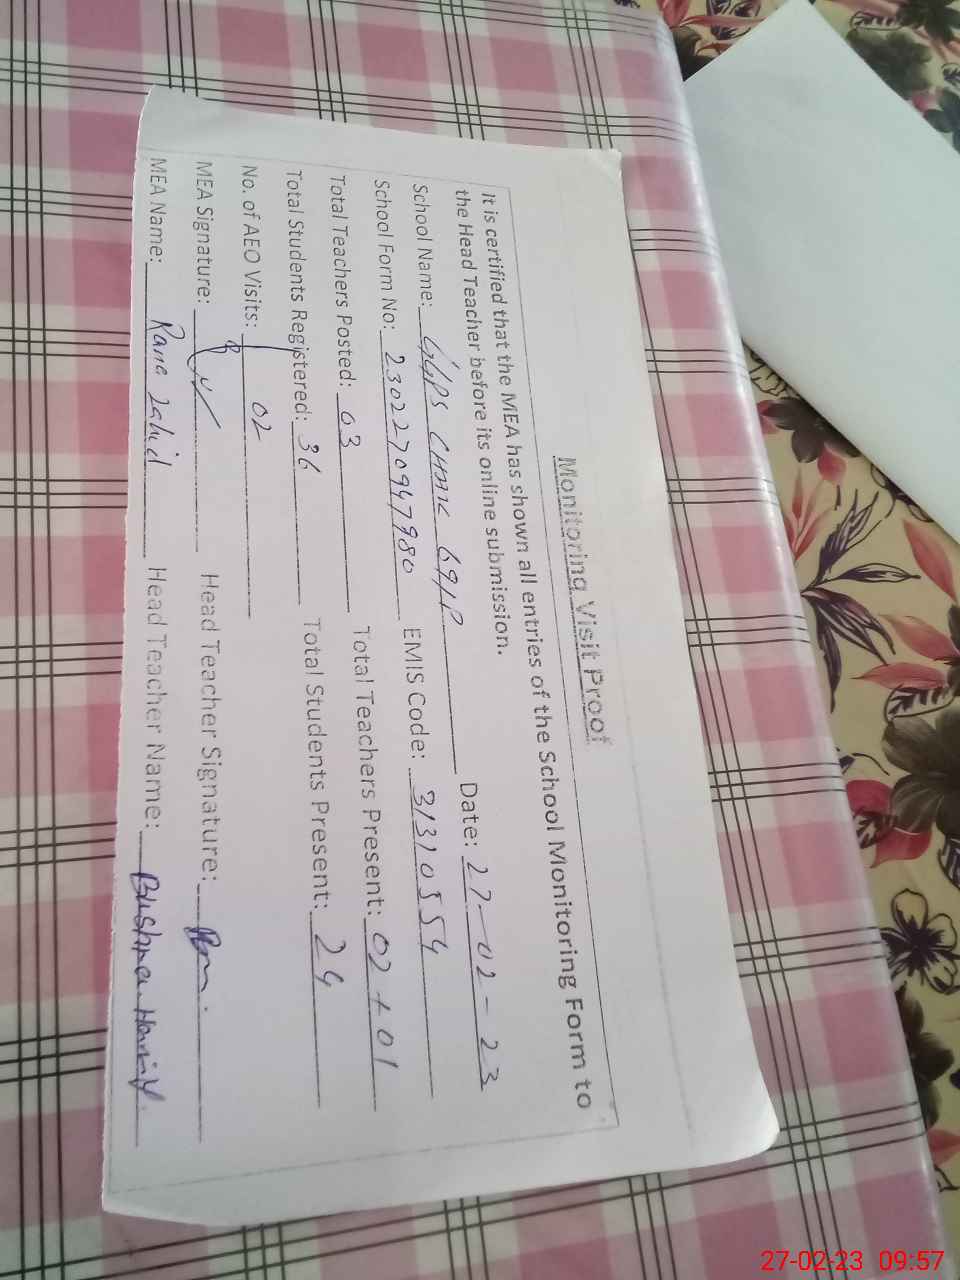 Monitoring Visit Proof
It is certified that the MEA has shown all entries of the School Monitoring Form to
the Head Teacher before its online submission.
School Name: GGPS CHAK 69/P Date: 27-02-23
School Form No: 2302270947980 EMIS Code: 31310554
Total Teachers Posted: 03 Total Teachers Present: 02+01
Total Students Registered: 36 Total Students Present: 24
No. of AEO Visits: 02
MEA Signature: Head Teacher Signature:
MEA Name: Rana Zahid Head Teacher Name: Bushra Hanif
27-02-23 09:57